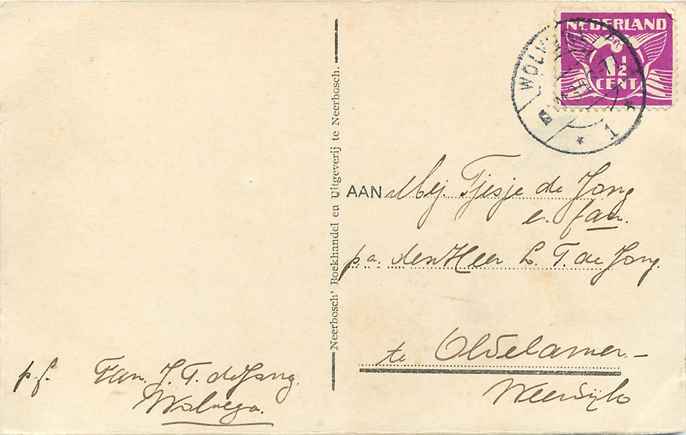 NEDERLAND
1½
CENT
WOLVEGA
1
AAN Mej. Tjesje de Jong
e. fam.
p.a. den Heer L. T. de Jong.
te Oldelamer-
Weerdijk
p.f. Fam. J. T. de Jong.
Wolvega.
Neerbosch' Boekhandel en Uitgeverij te Neerbosch.